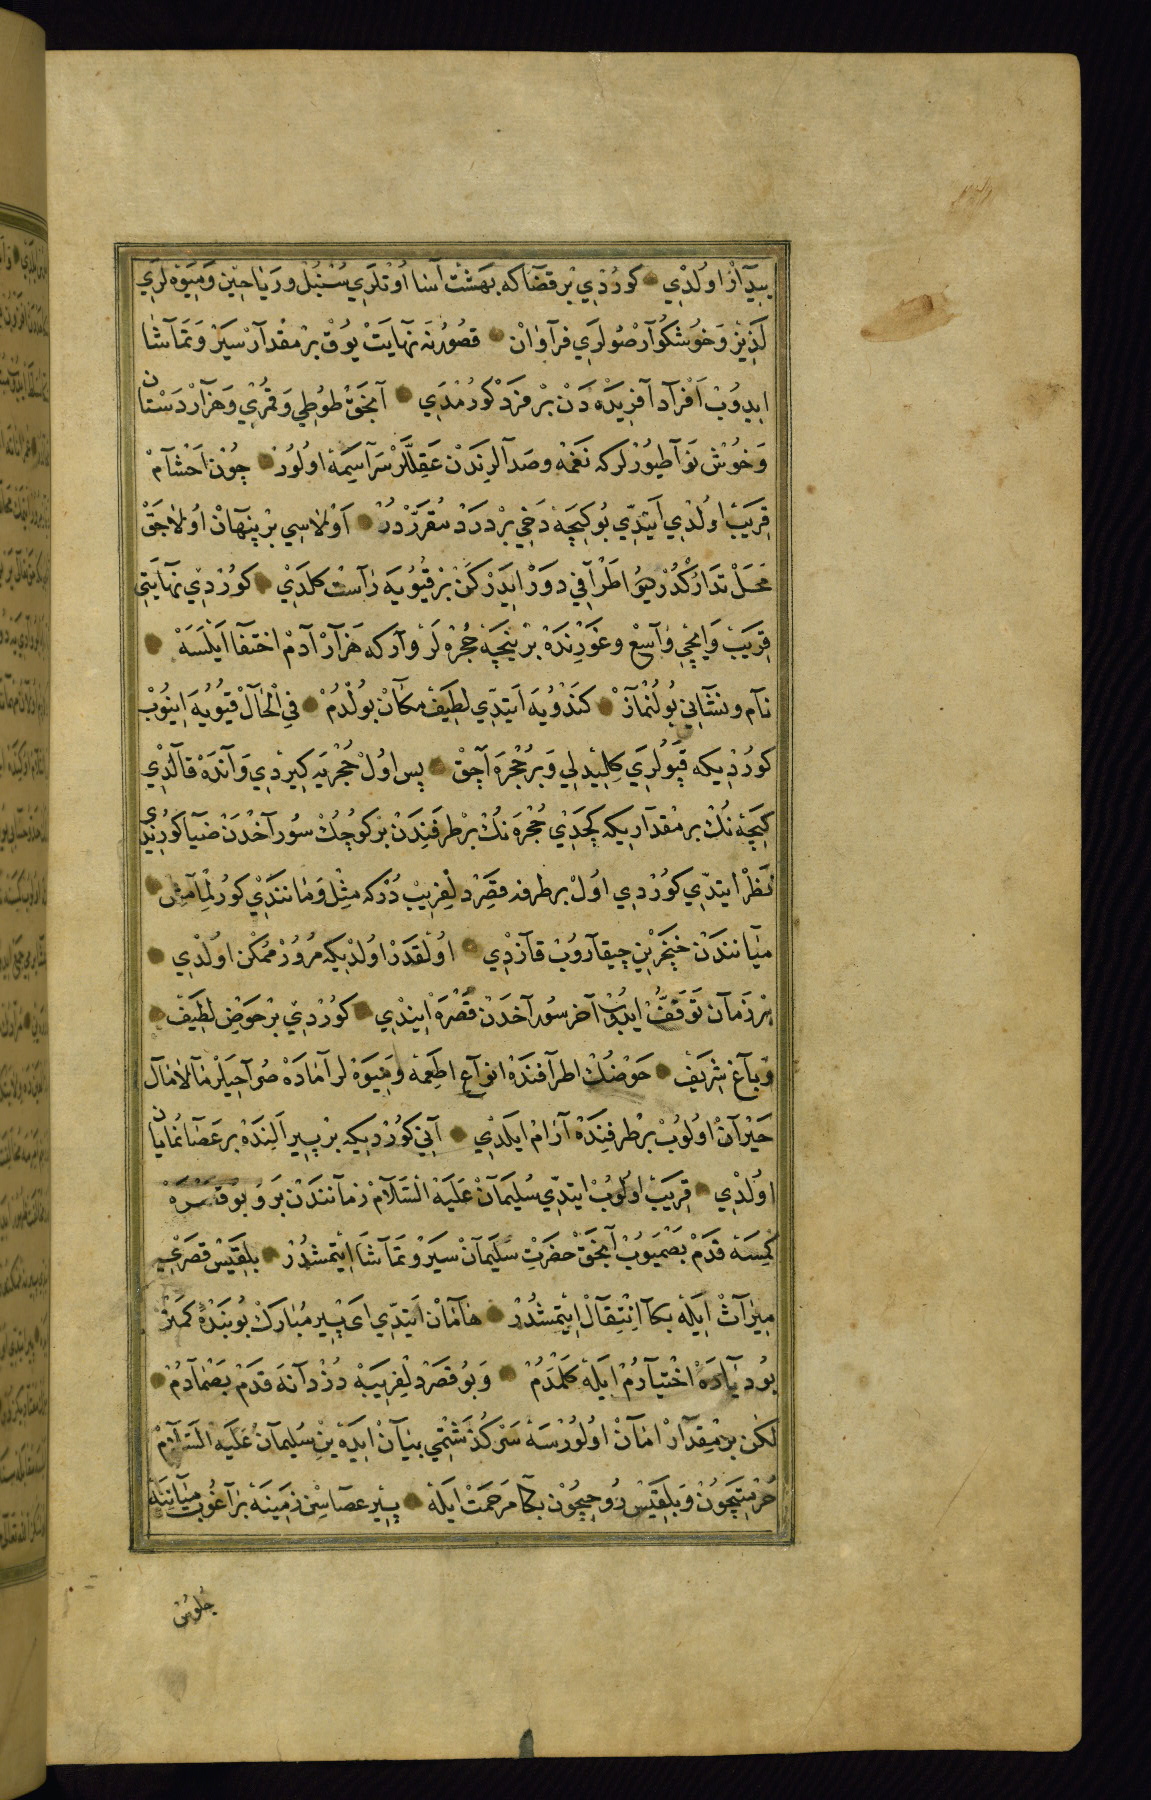 بيدآر اولدي كوردي بر فضا كه بهشت آسا اوتلري سنبل و رياحين و ميوه لري
لذيذ و خوشكوآر صولري فرآوان قصورنه نهايت يوق بر مقدآر سير و تماشا
ايدوب افرآد آفريده دن بر فرد كورمدي آنجق طوطي و قمري و هزآر دستان
و خوش نوآ طيورلر كه نغمه و صدآلرندن عقللر سرآسيمه اولور چون اخشآم
قريب اولدي ايتدي بو كيجه دخي بر درد مقرردر اولاسي بر پنهان اولاجق
محل تداركدر ديو اطرآفي دور ايدركن بر قيويه رآست كلدي كوردي نهايتي
قريب و ايچي وآسع و غورنده بر نيجه حجره لر وآر كه هزآر آدم اختفا ايلسه
نآم و نشآني بولنمآز كندويه ايتدي لطيف مكان بولدم في الحآل قيويه اينوب
كورديكه قپولري كليدلي و بر حجره آچق پس اول حجريه كيردي و آنده قآلدي
كيجه نك بر مقدآريكه كچدي حجره نك بر طرفندن بر كوچك سورآخدن ضيا كورندي
نظر ايتدي كوردي اول بر طرفه قصر دلفريب در كه مثل و مانندي كورلمآمش
ميآنندن خنجرين چيقآروب قازدي اولقدر اولديكه مرور ممكن اولدي
بر زمآن توقف ايدوب آخر سورآخدن قصره ايندي كوردي بر حوض لطيف
و باغ شريف حوضك اطرآفنده انوآع اطعمه و ميوه لر آماده صوآحيلر مآلامآل
حيرآن اولوب بر طرفنده آرام ايلدي آني كورديكه بر پير النده بر عصا نمايان
اولدي قريب اولوب ايتدي سليمآن عليه السلآم زمآنندن برو بو قصره
كمسه قدم بصميوب آنجق حضرت سليمآن سير و تمآشا ايتمشدر بلقيس قصري
ميرآث ايله بكا انتقآل ايتمشدر هامان ايتدي اى پير مبارك بو بنده كمتر
بو ديآره اختيآرم ايله كلمدم و بو قصر دلفريبه دزدآنه قدم بصمآدم
لكن بر مقدآر امآن اولورسه سركذشتمي بيآن ايده ين سليمآن عليه السلآم
حرمتيچون و بلقيس روحيچون بكا مرحمت ايله پير عصاسن زمينه برآغوب ميآننه
جلوس